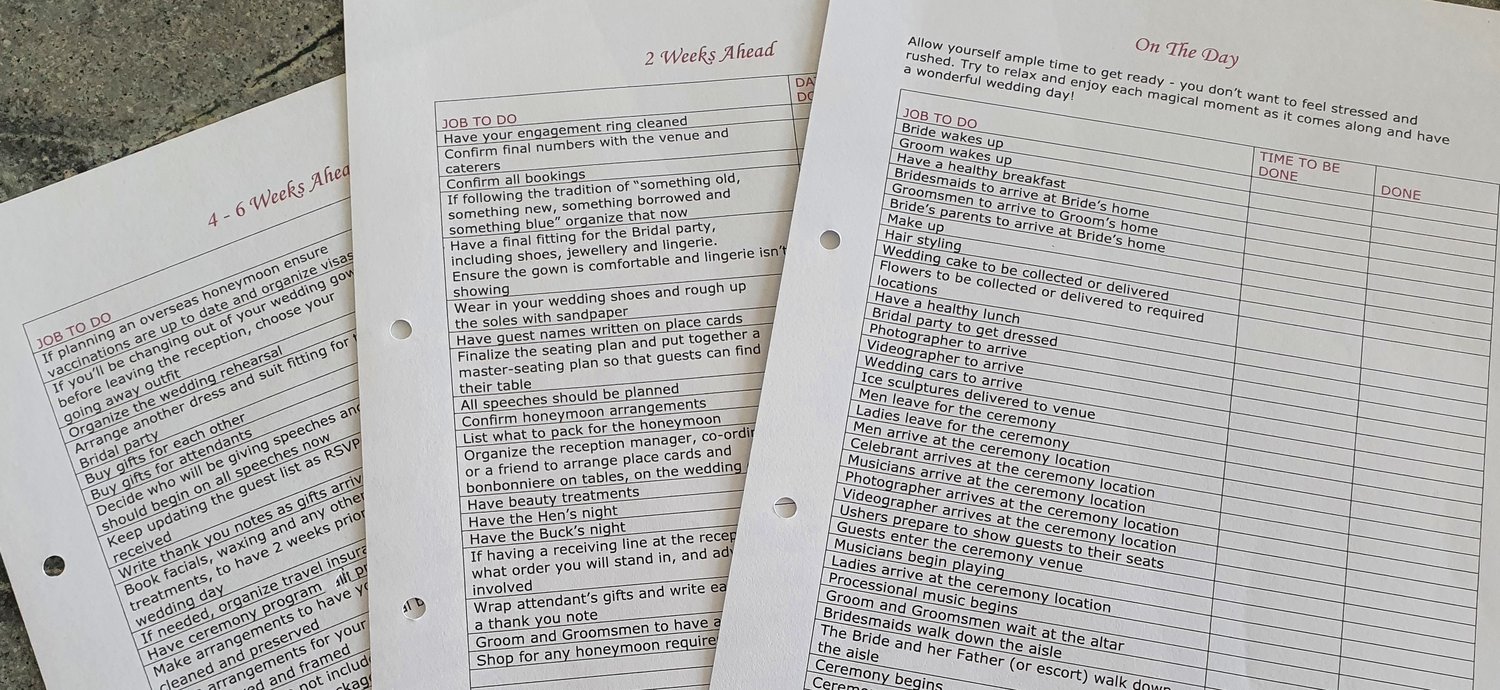 4 - 6 Weeks
JOB TO DO
If planning an overseas honeymoon ensure
vaccinations are up to date and organize visas
If you'll be changing out of your wedding
before leaving the reception, choose your
going away outfit
Organize the wedding rehearsal
Arrange another dress and suit fitting for
Bridal party
Buy gifts for each other
Buy gifts for attendants
Decide who will be giving speeches and
should begin on all speeches now
Keep updating the guest list as RSVP
received
Write thank you notes as gifts
Book facials, waxing and any other
treatments, to have 2 weeks prior
wedding day
If needed, organize travel
Have ceremony program
Make arrangements to have
cleaned and preserved
arrangements for your
and framed
not
2 Weeks Ahead
JOB TO DO
Have your engagement ring cleaned
Confirm final numbers with the venue and
caterers
Confirm all bookings
If following the tradition of “something old,
something new, something borrowed and
something blue” organize that now
Have a final fitting for the Bridal party,
including shoes, jewellery and lingerie.
Ensure the gown is comfortable and lingerie isn't
showing
Wear in your wedding shoes and rough up
the soles with sandpaper
Have guest names written on place cards
Finalize the seating plan and put together a
master-seating plan so that guests can find
their table
All speeches should be planned
Confirm honeymoon arrangements
List what to pack for the honeymoon
Organize the reception manager,
or a friend to arrange place cards and
bonbonniere on tables, on the wedding
Have beauty treatments
Have the Hen's night
Have the Buck's night
If having a receiving line at the
what order you will stand in, and
involved
Wrap attendant's gifts and write
a thank you note
Groom and Groomsmen to have a
Shop for any honeymoon
On The Day
Allow yourself ample time to get ready - you don't want to feel stressed and
rushed. Try to relax and enjoy each magical moment as it comes along and have
a wonderful wedding day!
JOB TO DO
TIME TO BE
DONE
DONE
Bride wakes up
Groom wakes up
Have a healthy breakfast
Bridesmaids to arrive at Bride's home
Groomsmen to arrive to Groom's home
Bride's parents to arrive at Bride's home
Make up
Hair styling
Wedding cake to be collected or delivered
Flowers to be collected or delivered to required
locations
Have a healthy lunch
Bridal party to get dressed
Photographer to arrive
Videographer to arrive
Wedding cars to arrive
Ice sculptures delivered to venue
Men leave for the ceremony
Ladies leave for the ceremony
Men arrive at the ceremony location
Celebrant arrives at the ceremony location
Musicians arrive at the ceremony location
Photographer arrives at the ceremony location
Videographer arrives at the ceremony location
Ushers prepare to show guests to their seats
Guests enter the ceremony venue
Musicians begin playing
Ladies arrive at the ceremony location
Processional music begins
Groom and Groomsmen wait at the altar
Bridesmaids walk down the aisle
The Bride and her Father (or escort) walk down
the aisle
Ceremony begins